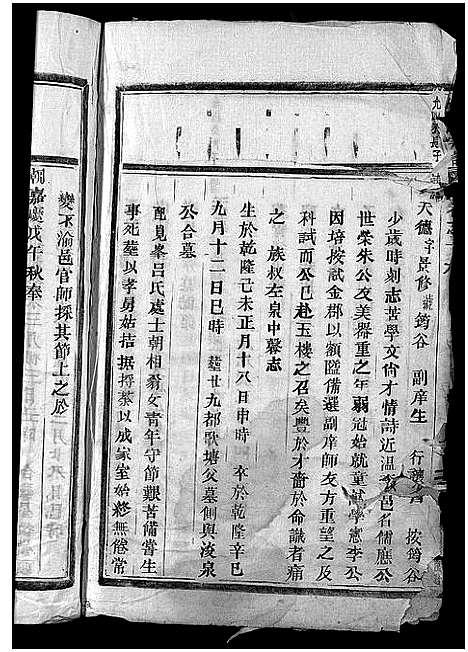 天德 字景修 號筠谷 副庠生 行 按筠谷
少歲時刻志苦學文尙才情詩近温李邑名儒應公
世榮朱公文美器重之年弱冠始就童試學憲李公
因培按試金郡以額隘備選副庠師友方重望之反
科試而公已赴玉樓之召矣豐於才嗇於命識者痛
之 族叔左泉中馨志
生於乾隆己未正月十八日申時 卒於乾隆辛巳
九月十二日巳時 塟廿九都歌塘父墓創與凌泉
公合墓
配見峯呂氏處士朝相翁女青年守節艱苦備嘗生
事死塟以孝舅姑拮据捋荼以成家室始終無倦常
變不渝邑官師採其節上之於
朝嘉慶戊午秋奉